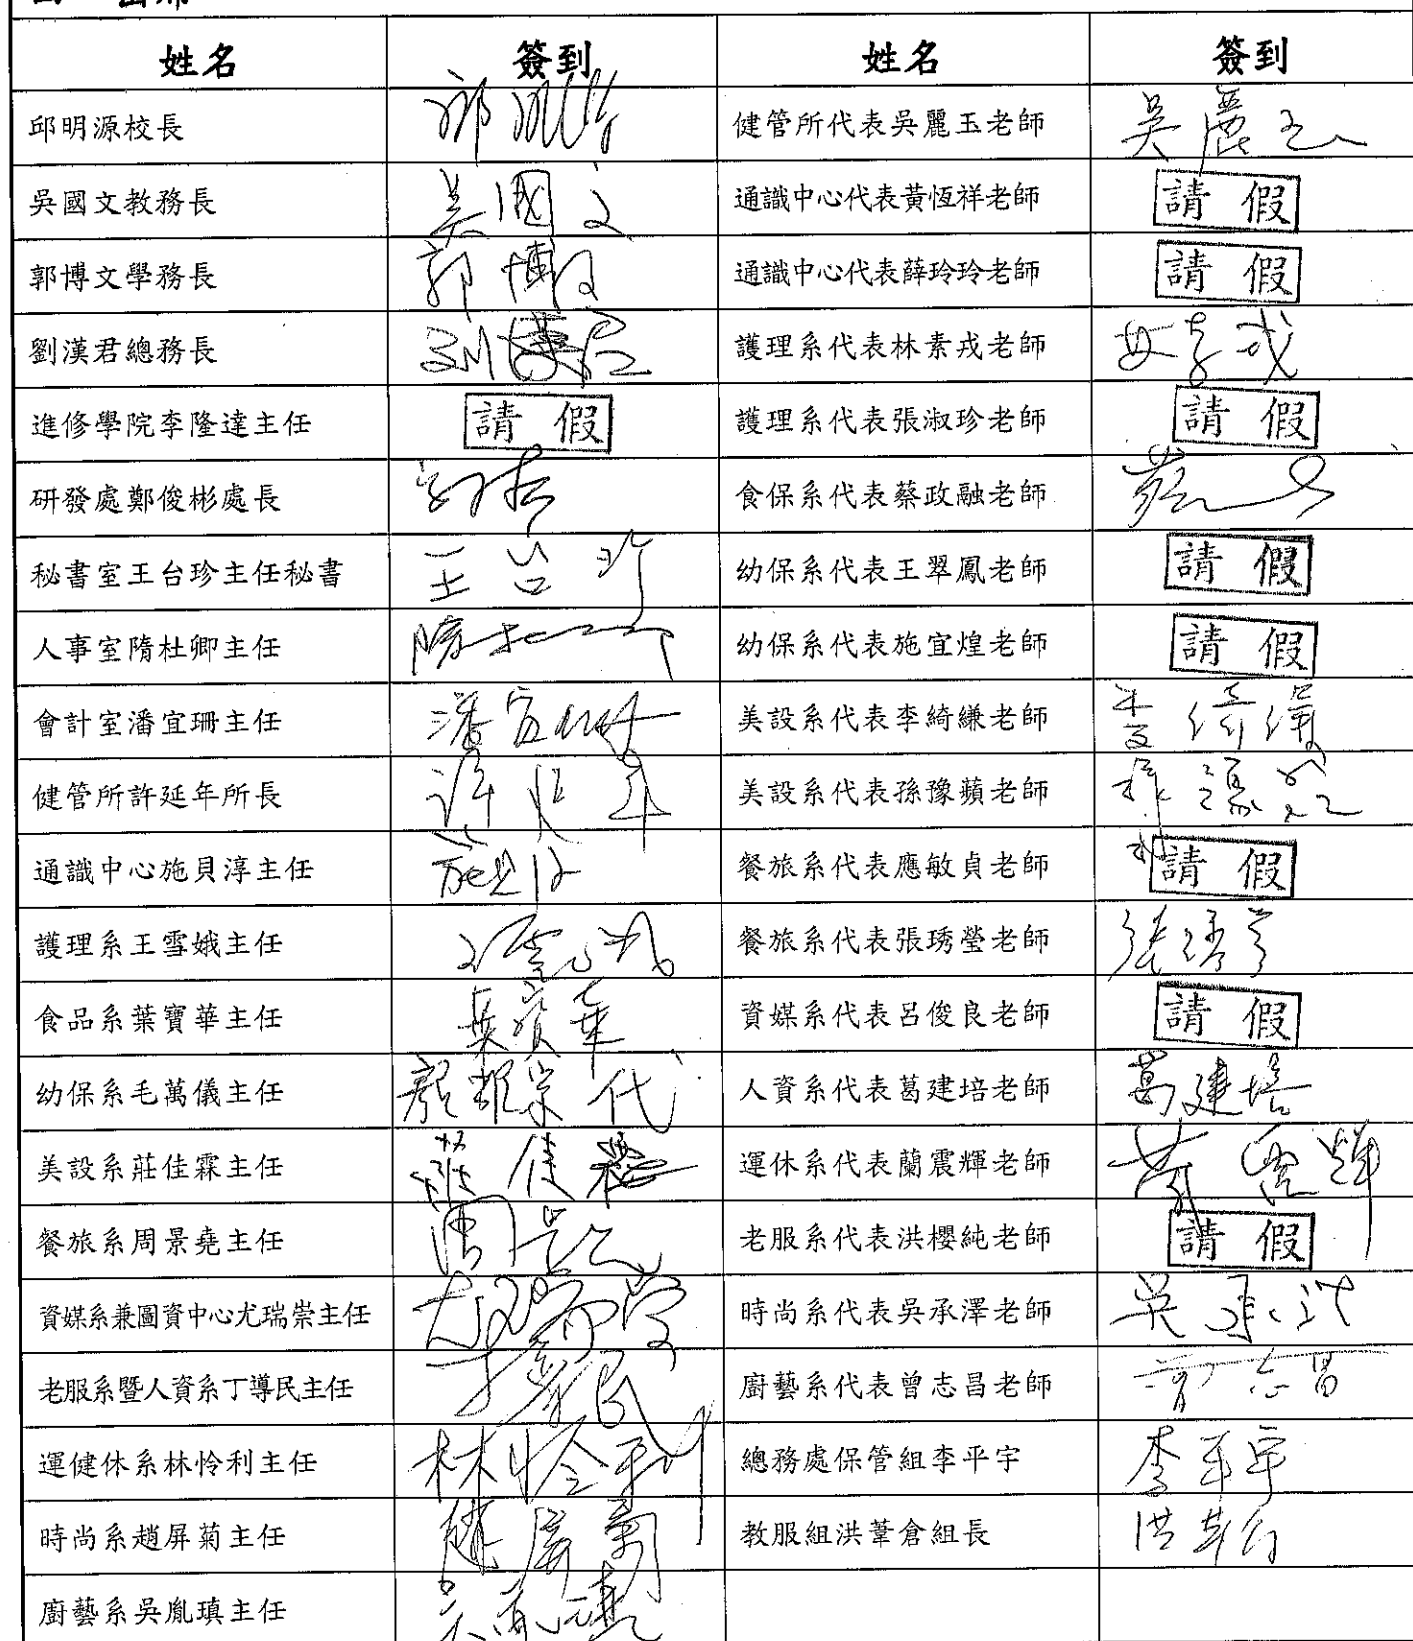 姓名 簽到 姓名 簽到
邱明源校長 健管所代表吳麗玉老師 吳麗玉
吳國文教務長 吳國文 通識中心代表黃恆祥老師 請假
郭博文學務長 郭博文 通識中心代表薛玲玲老師 請假
劉漢君總務長 劉漢君 護理系代表林素戎老師
進修學院李隆達主任 請假 護理系代表張淑珍老師 請假
研發處鄭俊彬處長 食保系代表蔡政融老師
秘書室王台珍主任秘書 王台珍 幼保系代表王翠鳳老師 請假
人事室隋杜卿主任 幼保系代表施宜煌老師 請假
會計室潘宜珊主任 潘宜珊 美設系代表李綺縑老師
健管所許延年所長 許延年 美設系代表孫豫蘋老師
通識中心施貝淳主任 餐旅系代表應敏貞老師 請假
護理系王雪娥主任 餐旅系代表張琇瑩老師
食品系葉寶華主任 葉寶華 資媒系代表呂俊良老師 請假
幼保系毛萬儀主任 代 人資系代表葛建培老師 葛建培
美設系莊佳霖主任 運休系代表蘭震輝老師
餐旅系周景堯主任 老服系代表洪櫻純老師 請假
資媒系兼圖資中心尤瑞崇主任 時尚系代表吳承澤老師
老服系暨人資系丁導民主任 丁導民 廚藝系代表曾志昌老師 曾志昌
運健休系林怜利主任 林怜利 總務處保管組李平宇 李平宇
時尚系趙屏菊主任 教服組洪葦倉組長
廚藝系吳胤瑱主任